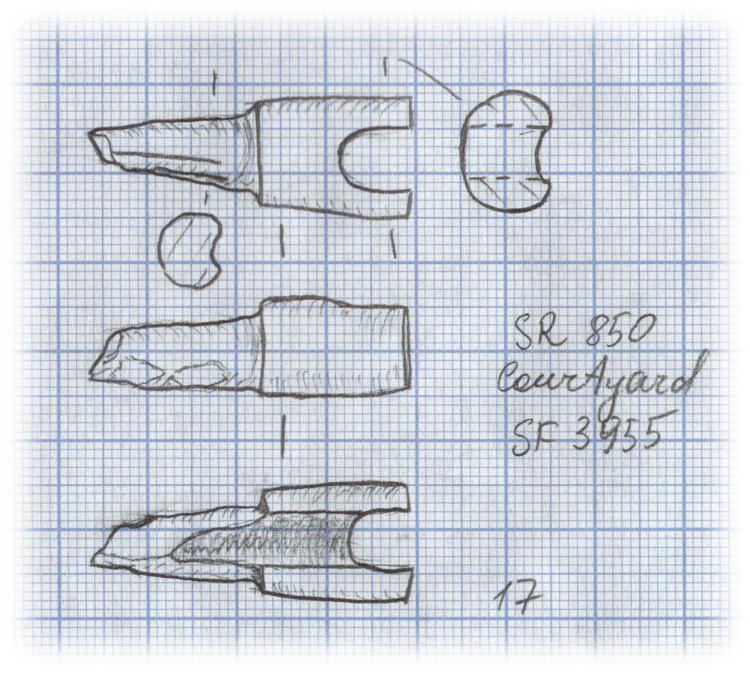 SR 850
Courtyard
SF 3955
17